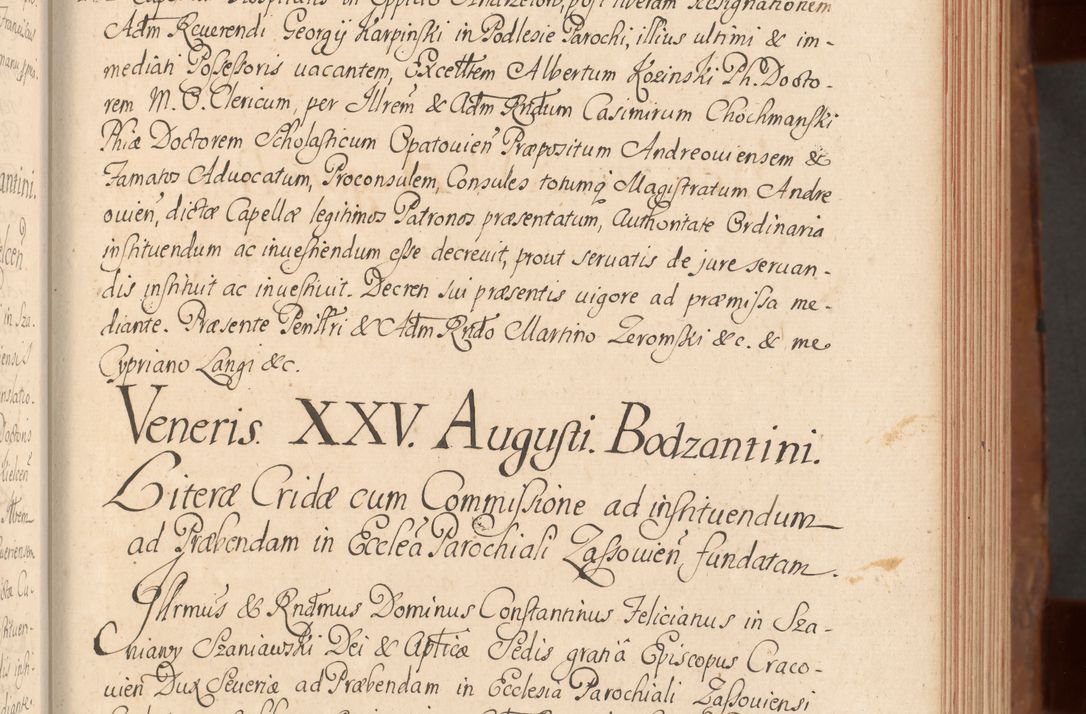 Adm Reverendi Georgÿ Karpinski in Podlesie Parochi, illius ultimi & im-
mediati Possessoris vacantem, Excelltem Albertum Kozinski Ph. Docto-
rem M. O. Clericum, per Illrem & Adm Rndum Casimirum Chochmanski
Phiæ Doctorem Scholasticum Opatovien Præpositum Andreoviensem &
Famatos Advocatum, Proconsulem, Consules totumq Magistratum Andre
ovien, dictæ Capellæ legitimos Patronos præsentatum, Authoritate Ordinaria
instituendum ac investiendum esse decrevit, prout servatis de jure servan-
dis instituit ac investivit. Decren sui præsentis vigore ad præmissa me-
diante. Præsente Perillri & Adm Rndo Martino Zeromski &c. & me
Cypriano Langi &c.
Veneris. XXV. Augusti. Bodzantini.
Literæ Cridæ cum Commissione ad instituendum
ad Præbendam in Ecclea Parochiali Zassovien fundatam.
Illrmus & Rndmus Dominus Constantinus Felicianus in Sza-
niawy Szaniawski Dei & Apticæ Sedis gratia Episcopus Craco-
vien Dux Severiæ ad Præbendam in Ecclesia Parochiali Zassoviensi